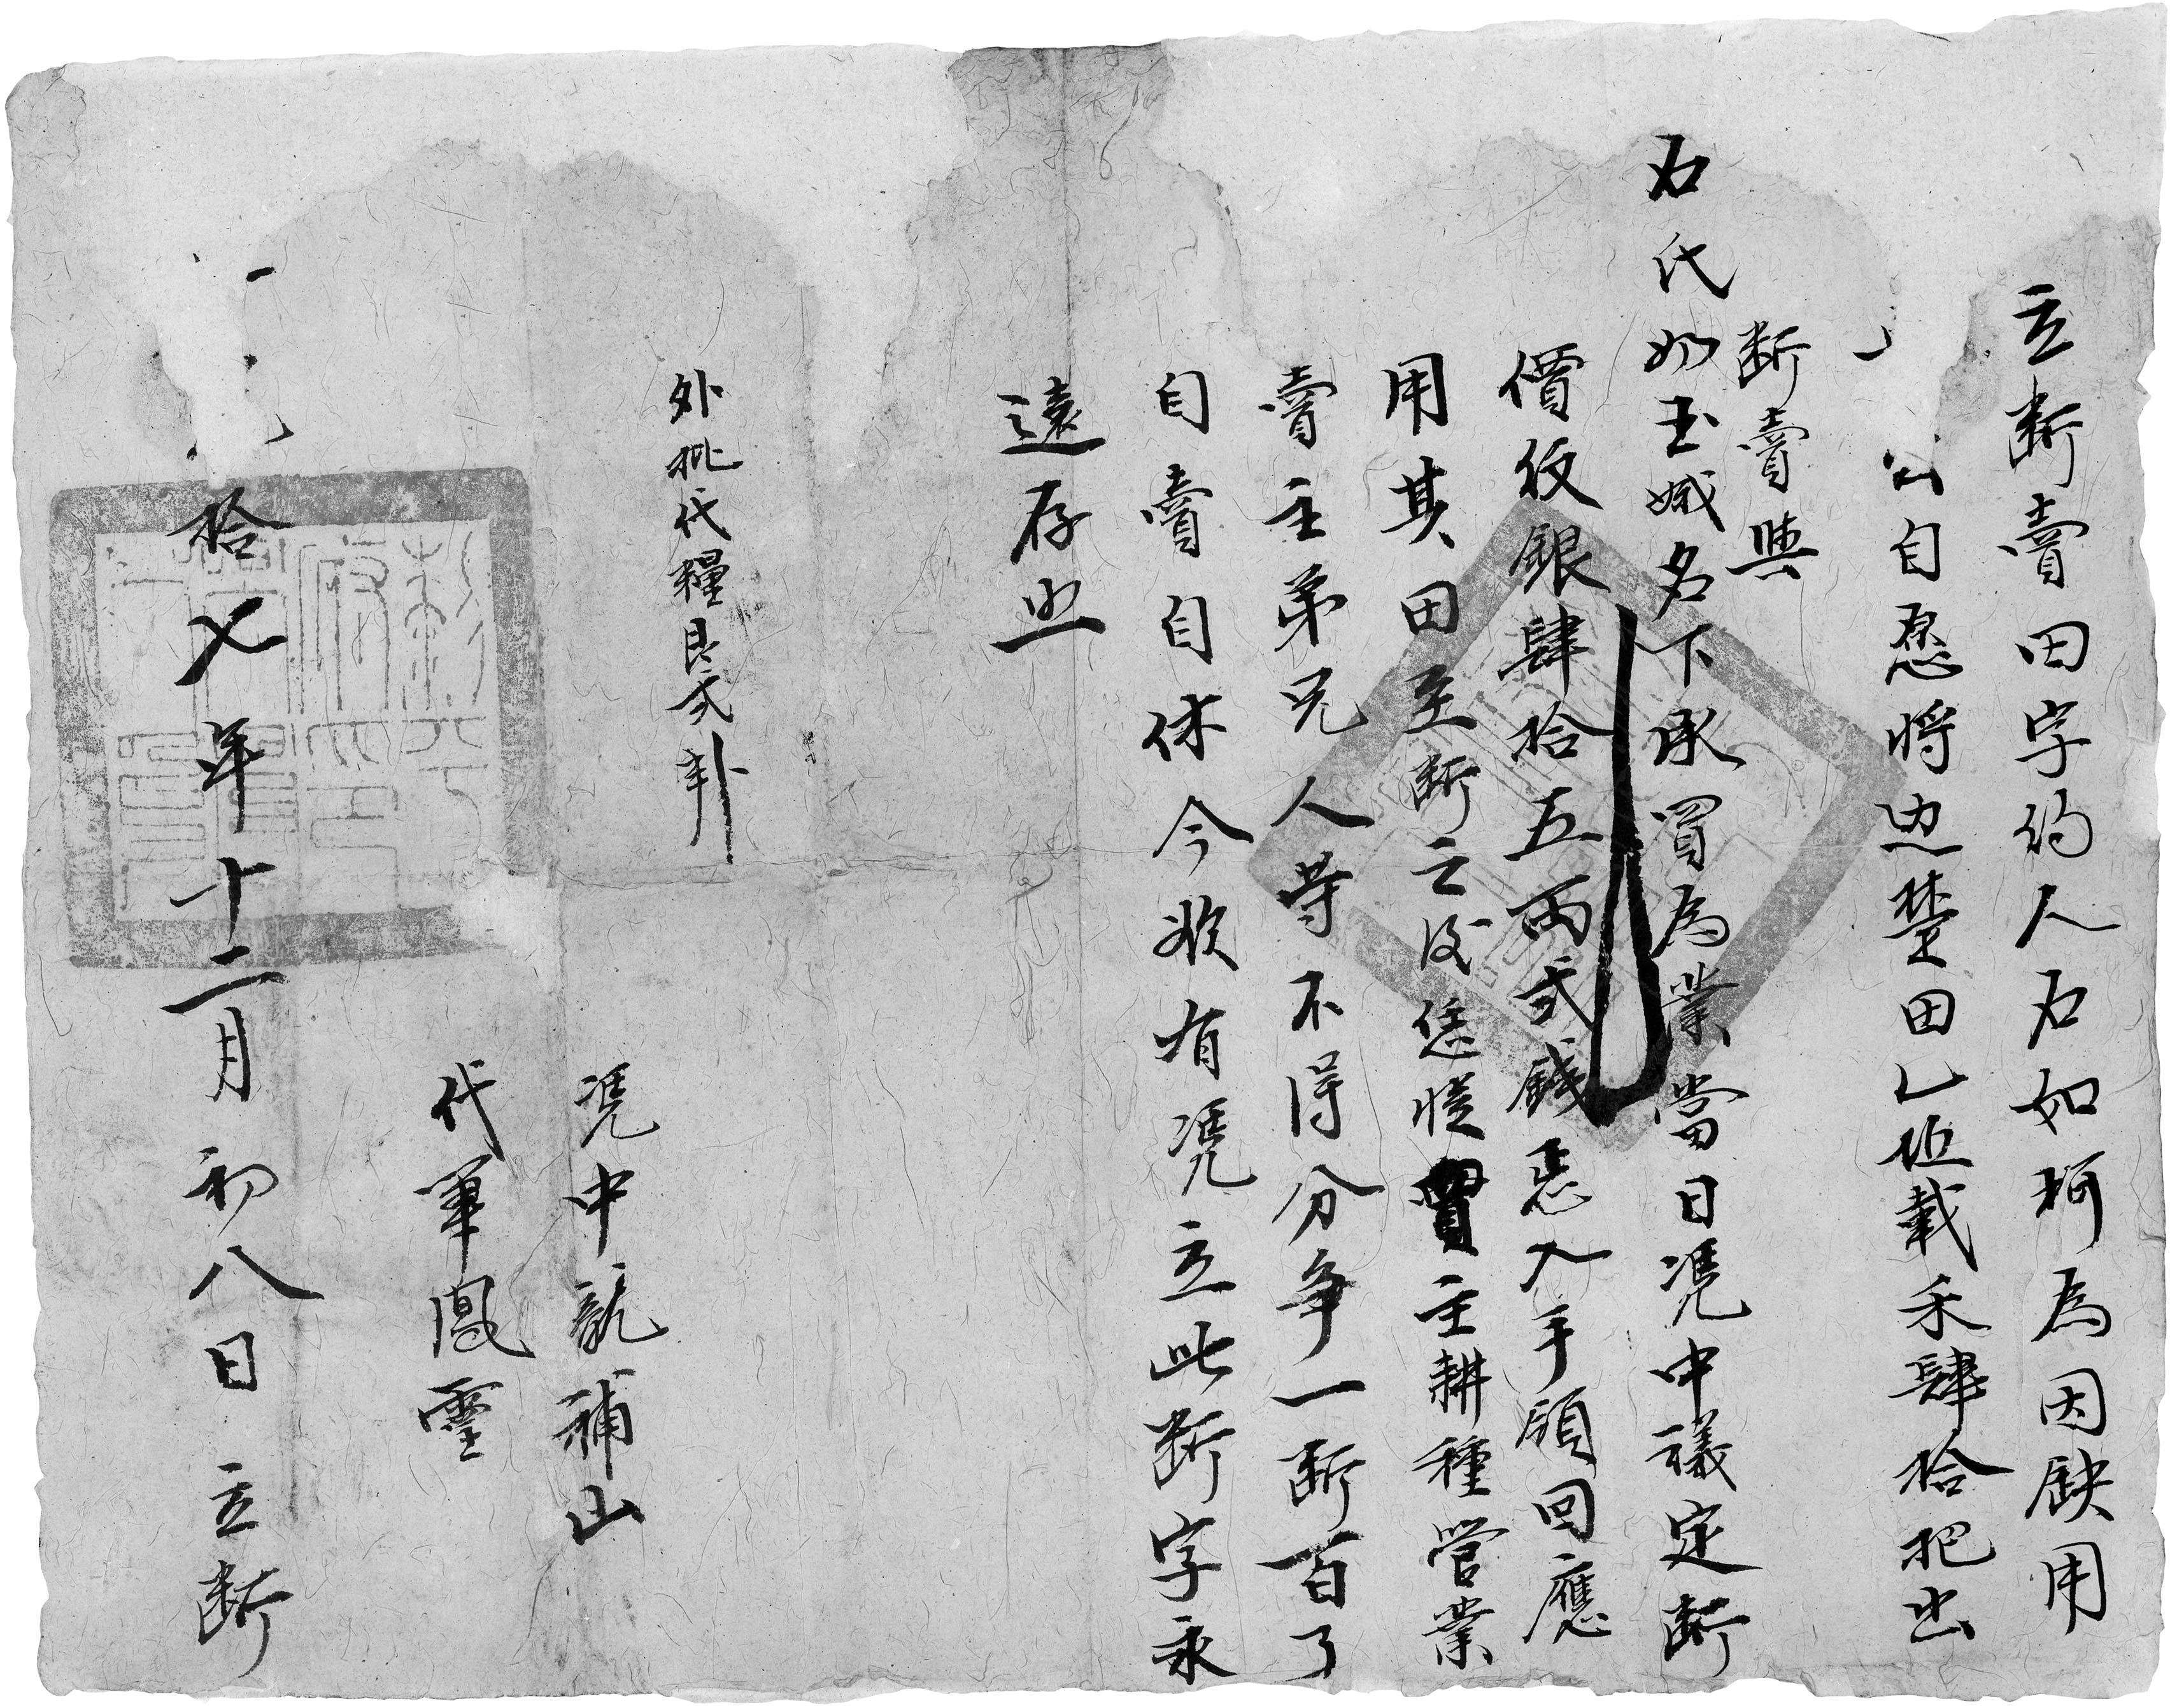 立斷賣田字約人石如珂為因缺用
自愿將边楚田乚坵載禾肆拾把出
斷賣與
石氏如玉娥名下承買為業當日凴中議定斷
價紋銀肆拾五兩弍錢悉入手領回應
用其田至斷之後恁慿買主耕種管業
賣主弟兄人等不得分争一斷百了
自賣自休今欲有凴立此斷字永
遠存照
外批代糧艮弍
凴中龍補山
代筆鳳靈
拾乂年十二月初八日立斷